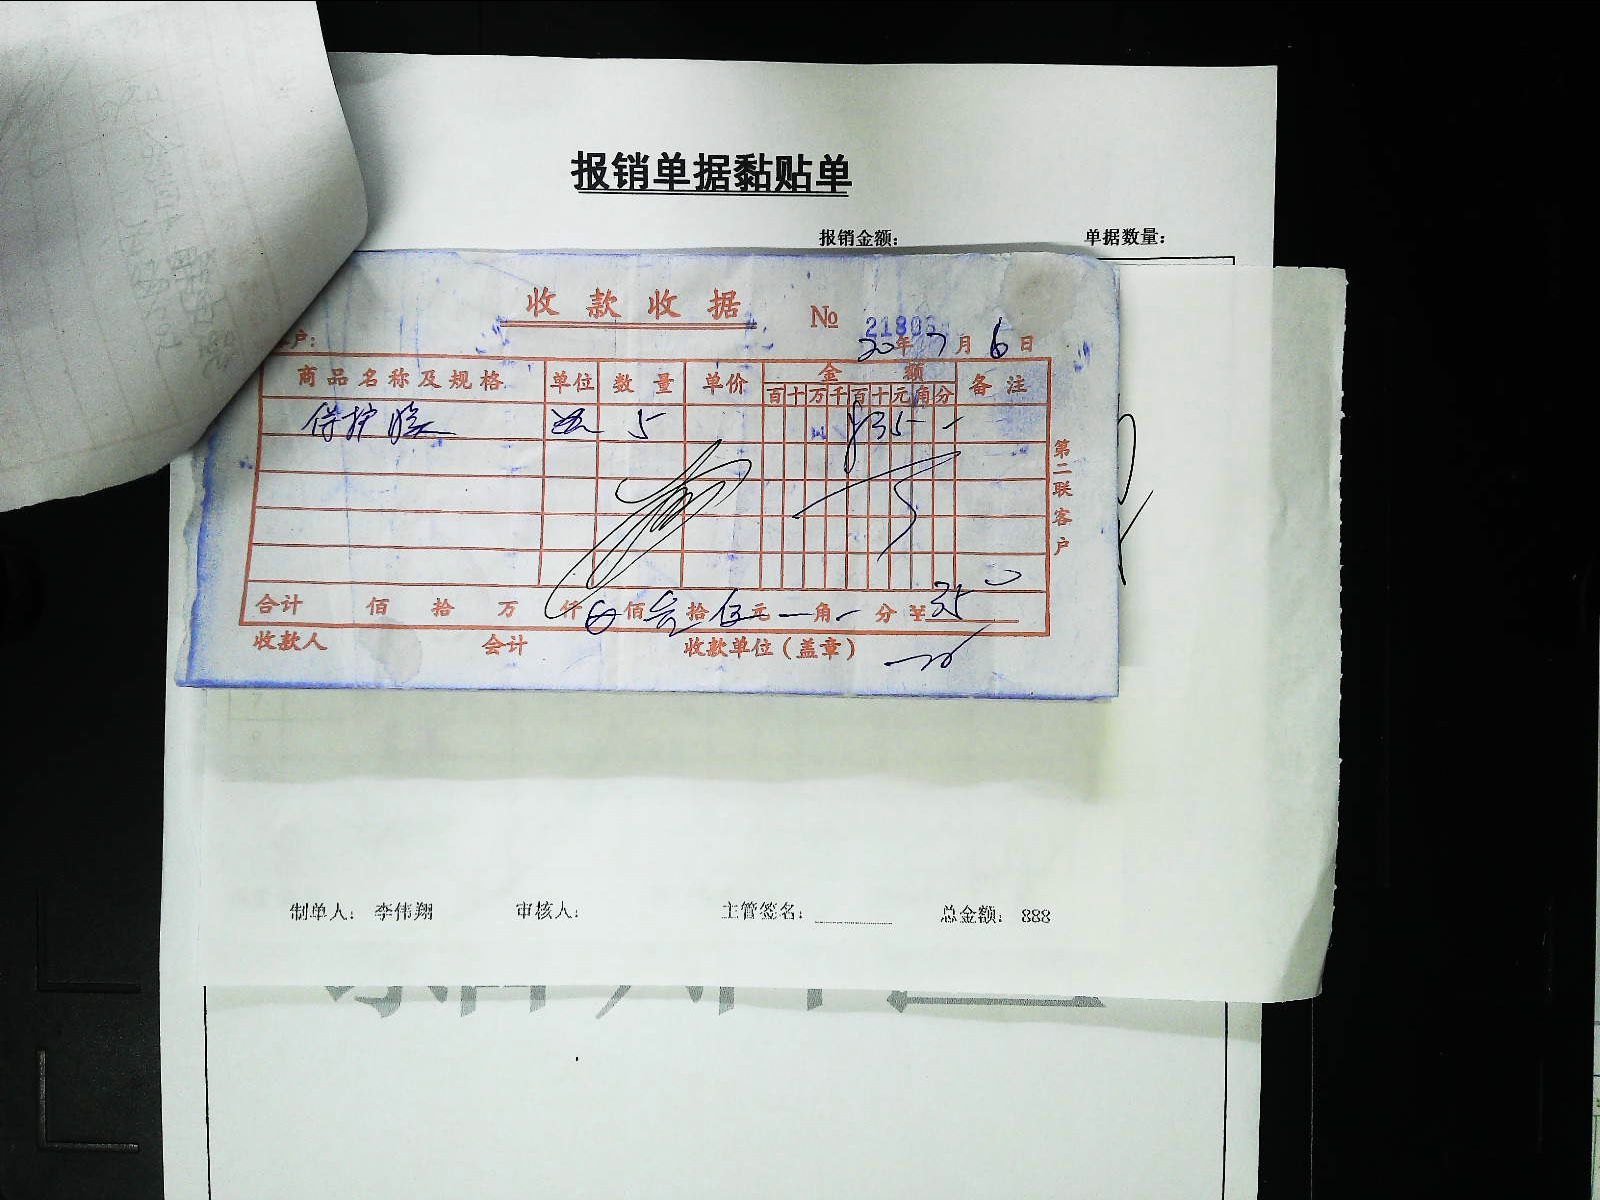 报销单据黏贴单
报销金额： 单据数量：
收款收据 № 21803
户： 20年7月6日
商品名称及规格 单位 数量 单价 金额 备注
百十万千百十元角分
保护膜 5 ¥35--
第二联客户
合计 佰 拾 万 仟 佰叁拾伍元-角-分 ¥35
收款人 会计 收款单位（盖章）
制单人： 李伟翔 审核人： 主管签名： 总金额： 888